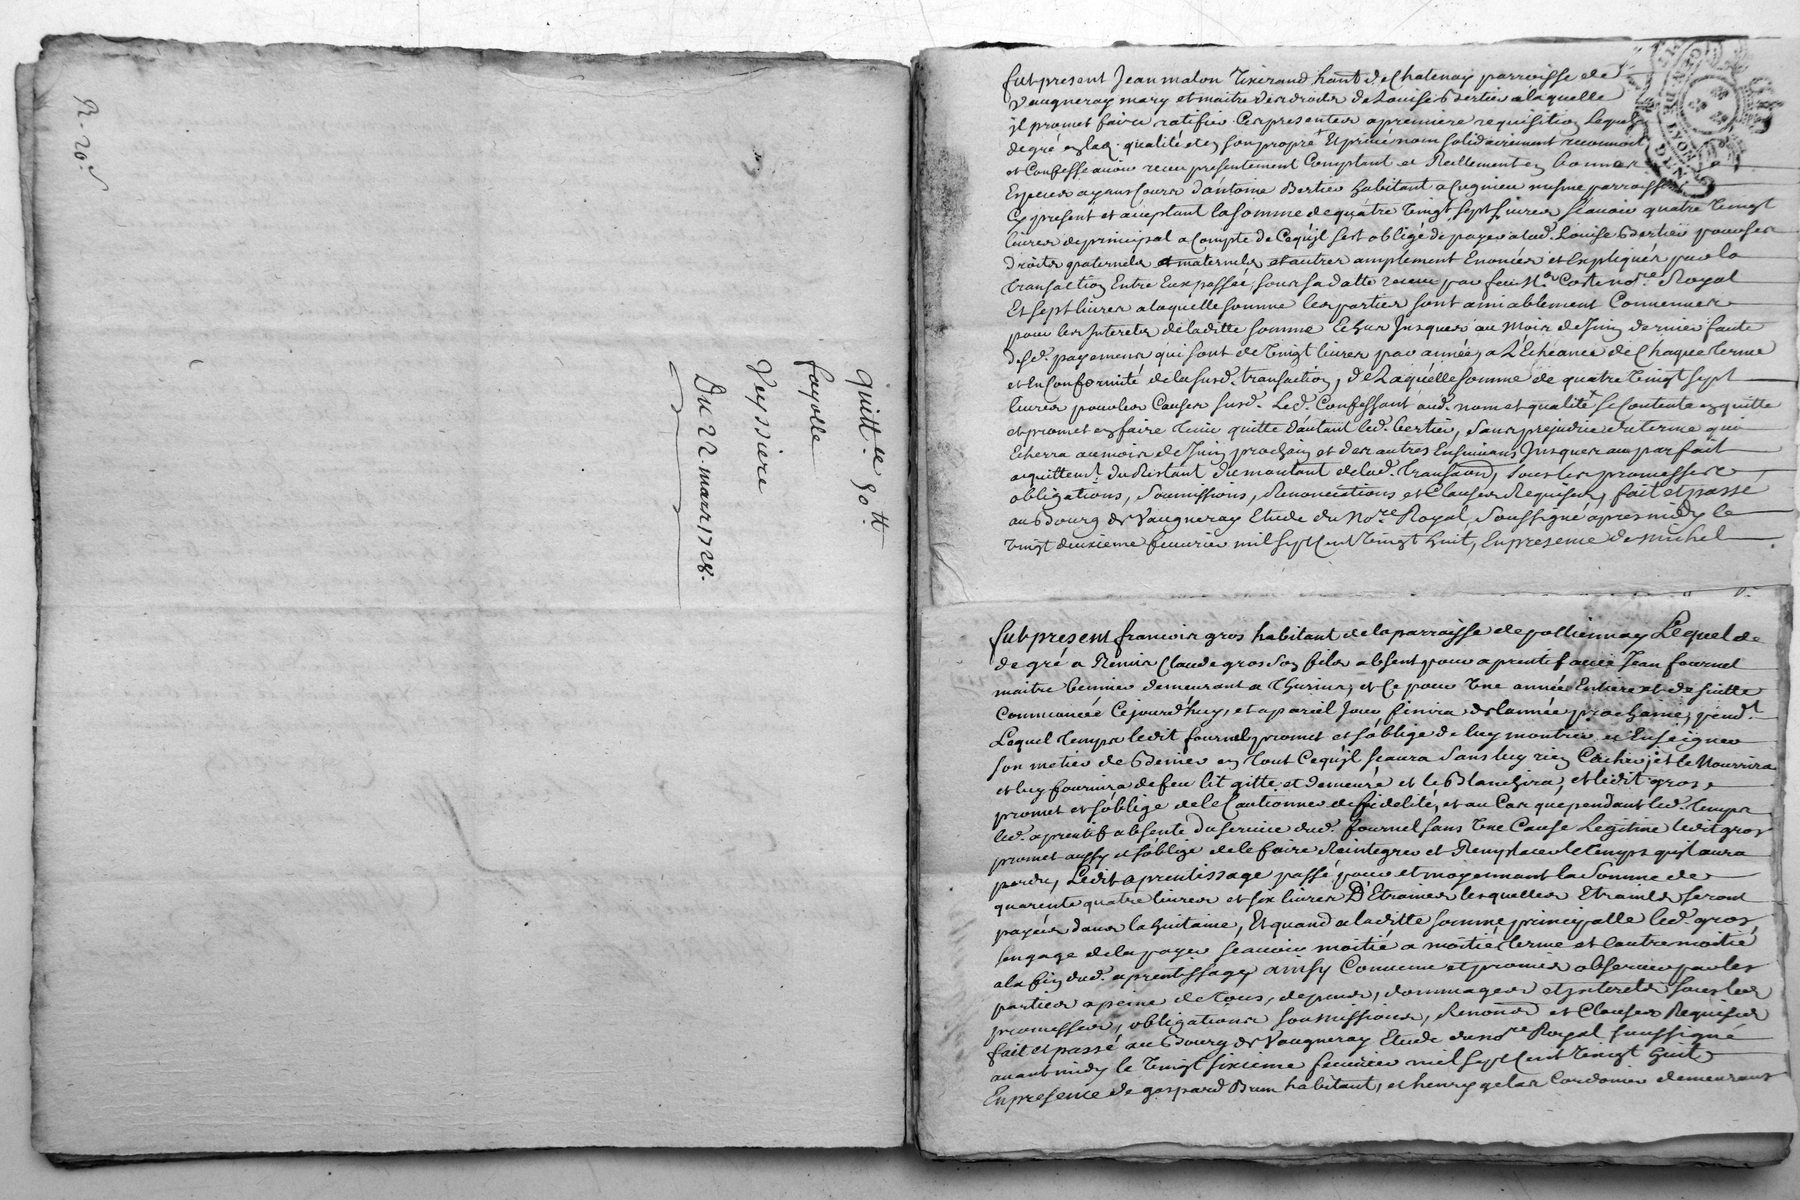 R. 20. s
quitt.ce 90.tt
fayolle
Veyssiere
Du 22. mars 1728.
fut present Jean malon Tixerand hant. de Chatenay parroisse de
Vaugneray mary et maitre des droits de Louise Bertier a laquelle
il promet faire ratifier Ces presentes a premiere requisition Lequel
de gré en lad. qualité et en son propre Et privé nom solidairement reconnoit
et Confesse avoir receu presentement Comptant et Reellement en bonnes
Especes ayans Cours d'antoine Bertier habitant a mesme parroisse
Cy present et acceptant la somme de quatre Vingt sept livres scavoir quatre Vingt
livres de principal a Compte de Ce qu'jl s'est obligé de payer a lad. Louise Bertier pour ses
Droits paternels et maternels et autres amplement Enoncés et Expliqués par la
transaction Entre Eux passée sous sa datte receue par feu M.e Coste no.re Royal
Et sept livres a laquelle somme les parties sont amiablement Convenues
pour les Jnterets de laditte somme Echus Jusques au mois de Juin dernier faute
desd. payemens qui sont de Vingt livres par année, a L'Echeance de Chaque terme
et En Conformité de la susd. transaction, De Laquelle somme de quatre Vingt sept
livres pour les Causes susd. Led. Confessant aud. nom et qualité se Contente en quitte
et promet en faire tenir quitte d'autant led. bertier, sans prejudice du terme qui
Echerra au mois de Juin prochain et des autres Ensuivans Jusques au parfait
aquittem.t du Restant du montant de lad. transaon, sous les promesses
obligations, soumissions, Renonciations et Clauses Requises, fait et passé
au Bourg de Vaugneray Etude du No.re Royal soussigné apres midy le
vingt deuxieme fevrier mil sept Cent Vingt huit, En presence de michel
fut present francois gros habitant de la parroisse de pollionnay Lequel de
de gré a Remis Claude gros son fils absent pour aprentif avec Jean fournel
maitre bennier demeurant a Thurins, et Ce pour Une année Entiere et de suitte
Commencée Cejourd'huy, et a pareil Jour finira de l'année prochaine, pend.t
Lequel temps ledit fournel promet et s'oblige de luy montrer et Enseigner
son metier de Benier en tout Ce qu'jl scaura sans luy rien Cacher, et le Nourrira
et luy fournira de feu lit gitte et demeure et le Blanchira, et ledit gros
promet et s'oblige de le Cautionner de fidelité, et au Cas que pendant led. temps
led. aprentif absente du service dud. fournel sans Une Cause Legitime ledit gros
promet aussy et s'oblige de le faire Reintegrer et Remplacer le temps qu'jl aura
perdu, Ledit aprentissage passé pour et moyennant la somme de
quarente quatre livres et six livres D'Etraines lesquelles Etraines seront
payées dans la huitaine, Et quand a laditte somme principalle led. gros
s'engage de la payer scavoir moitié a moitié terme et l'autre moitié
a la fin dud. aprentissage ainsy Convenu et promis observer par les
parties a peine de tous, depens, dommages et jnterets sous les
promesses, obligations soumissions, Renon.on et Clauses Requises
fait et passé au Bourg de Vaugneray Etude du no.re Royal soussigné
avant midy le Vingt sixieme fevrier mil sept Cent Vingt huit
En presence de gaspard Brun habitant, et henry gelas Cordonier demeurant